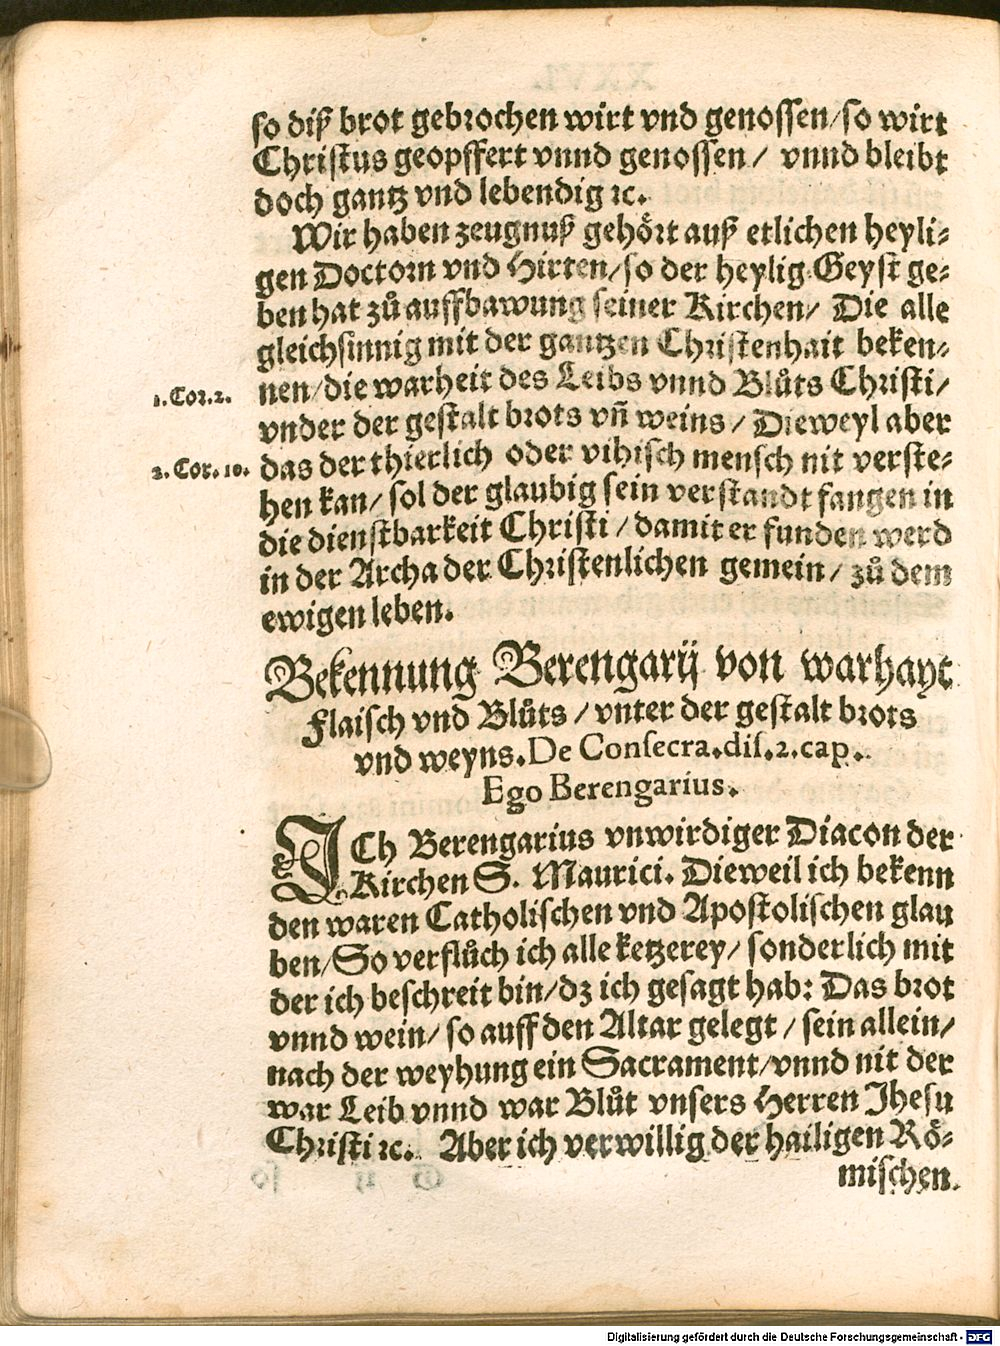 so diß brot gebrochen wirt vnd genossen/so wirt
Christus geopffert vnnd genossen/ vnnd bleibt
doch gantz vnd lebendig ꝛc.
Wir haben zeugnuß gehört auß etlichen heyli⸗
gen Doctorn vnd Hirten/so der heylig Geyst ge⸗
ben hat zů auffbawung seiner Kirchen/ Die alle
gleichsinnig mit der gantzen Christenhait beken⸗
1.Cor.2. nen/die warheit des Leibs vnnd Blůts Christi/
vnder der gestalt brots vñ weins/ Dieweyl aber
2.Cor.10. das der thierlich oder vihisch mensch nit verste⸗
hen kan/ sol der glaubig sein verstandt fangen in
die dienstbarkeit Christi/damit er funden werd
in der Archa der Christenlichen gemein/ zů dem
ewigen leben.
Bekennung Berengarij von warhayt
Flaisch vnd Blůts/vnter der gestalt brots
vnd weyns. De Consecra.dis.2.cap.
Ego Berengarius.
ICh Berengarius vnwirdiger Diacon der
Kirchen S. Maurici. Dieweil ich bekenn
den waren Catholischen vnd Apostolischen glau
ben/So verflůch ich alle ketzerey/ sonderlich mit
der ich beschreit bin/dz ich gesagt hab: Das brot
vnnd wein/ so auff den Altar gelegt/sein allein/
nach der weyhung ein Sacrament/vnnd nit der
war Leib vnnd war Blůt vnsers Herren Jhesu
Christi ꝛc. Aber ich verwillig der hailigen Rö⸗
mischen.
Digitalisierung gefördert durch die Deutsche Forschungsgemeinschaft - DFG